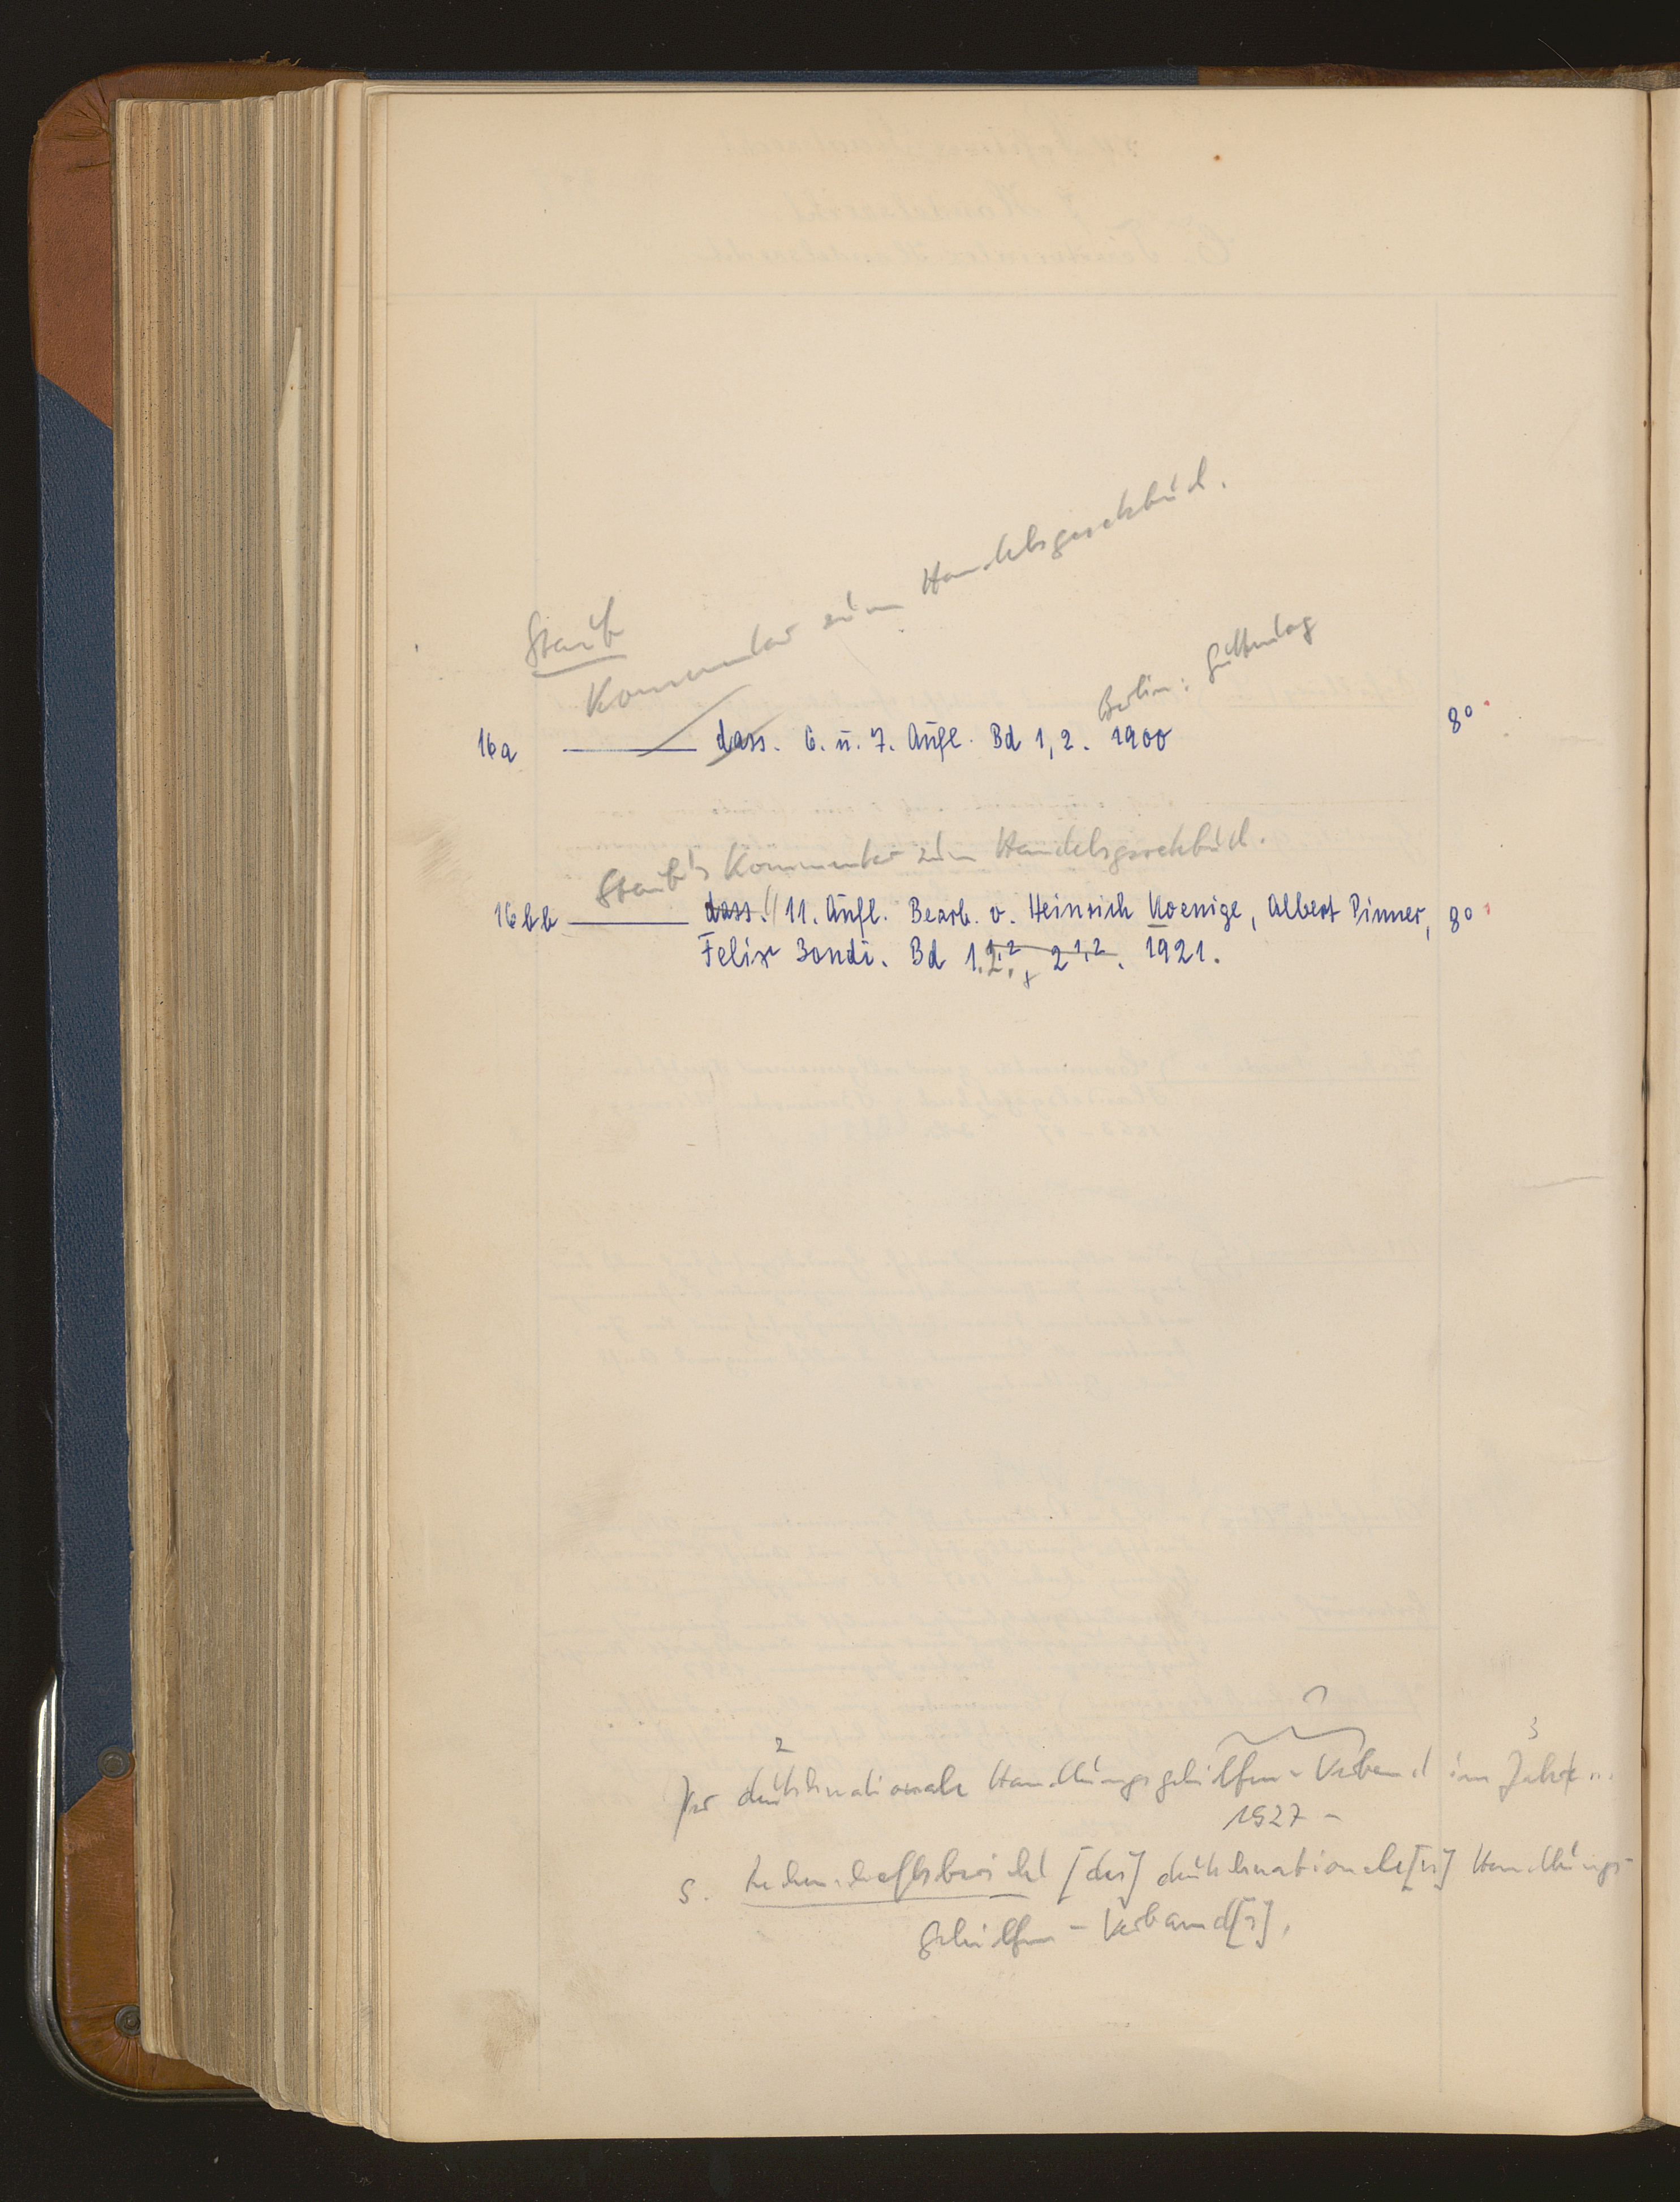 Staub
Kommentar zum Handelsgesetzbuch.
Berlin: Guttentag
16a ——— dass. 6. u. 7. Aufl. Bd 1, 2. 1900 8°
Staub's Kommentar zum Handelsgesetzbuch.
16bb ——— dass. // 11. Aufl. Bearb. v. Heinrich Koenige, Albert Pinner, 8°
Felix Bondi. Bd 1.2. 2 1,2. 1921.
2 1 3
Der deutschnationale Handlungsgehilfen-Verband im Jahre
1927 -
s. Rechenschaftsbericht [des] deutschnationale[n] Handlungs-
gehilfen-Verband[s].